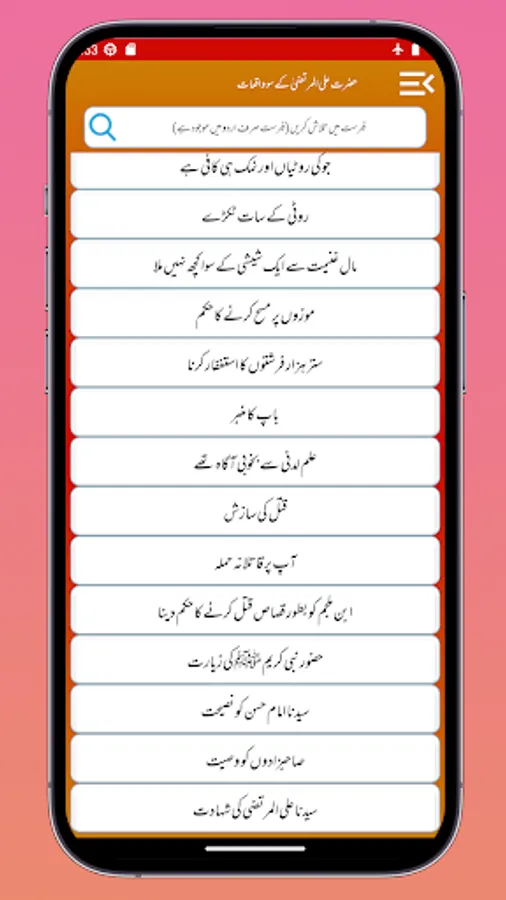 :53
حضرت علی المرتضیٰ کے سو واقعات
فہرست میں تلاش کریں (فہرست صرف اردو میں موجود ہے)
جو کی روٹیاں اور نمک ہی کافی ہے
روٹی کے سات ٹکڑے
مال غنیمت سے ایک شیشی کے سوا کچھ نہیں ملا
موزوں پر مسح کرنے کا حکم
ستر ہزار فرشتوں کا استغفار کرنا
باپ کا منبر
علم لدنی سے بخوبی آگاہ تھے
قتل کی سازش
آپ پر قاتلانہ حملہ
ابن ملجم کو بطور قصاص قتل کرنے کا حکم دینا
حضور نبی کریم ﷺ کی زیارت
سیدنا امام حسن کو نصیحت
صاحبزادوں کو وصیت
سیدنا علی المرتضیٰ کی شہادت